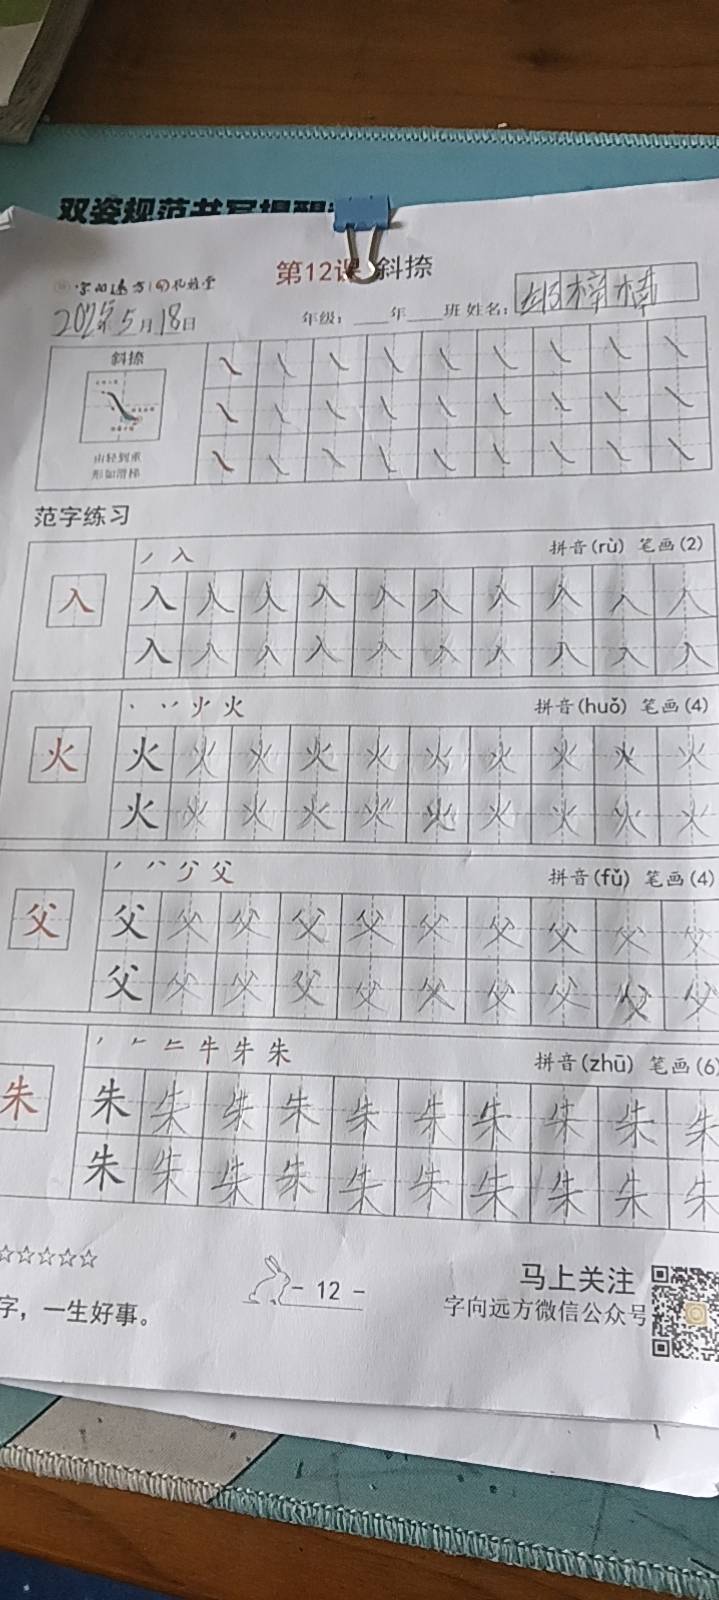 双姿规范书写提醒
第12课 斜捺
字向远方
5月18日
年级：____年____班 姓名：
斜捺
由轻到重
形如滑梯
范字练习
丿 入 拼音(rù) 笔画(2)
入 入 入 入 入 入 入 入 入 入 入
入 入 入 入 入 入 入 入 入 入
火 火 拼音(huǒ) 笔画(4)
火 火 火 火 火 火 火 火 火 火 火
火 火 火 火 火 火 火 火 火 火
父 拼音(fǔ) 笔画(4)
父 父 父 父 父 父 父 父 父 父 父
父 父 父 父 父 父 父 父 父 父
牛 朱 拼音(zhū) 笔画(6)
朱 朱 朱 朱 朱 朱 朱 朱 朱 朱 朱
朱 朱 朱 朱 朱 朱 朱 朱 朱 朱
☆☆☆☆☆
字，一生好事。
- 12 -
马上关注
字向远方微信公众号